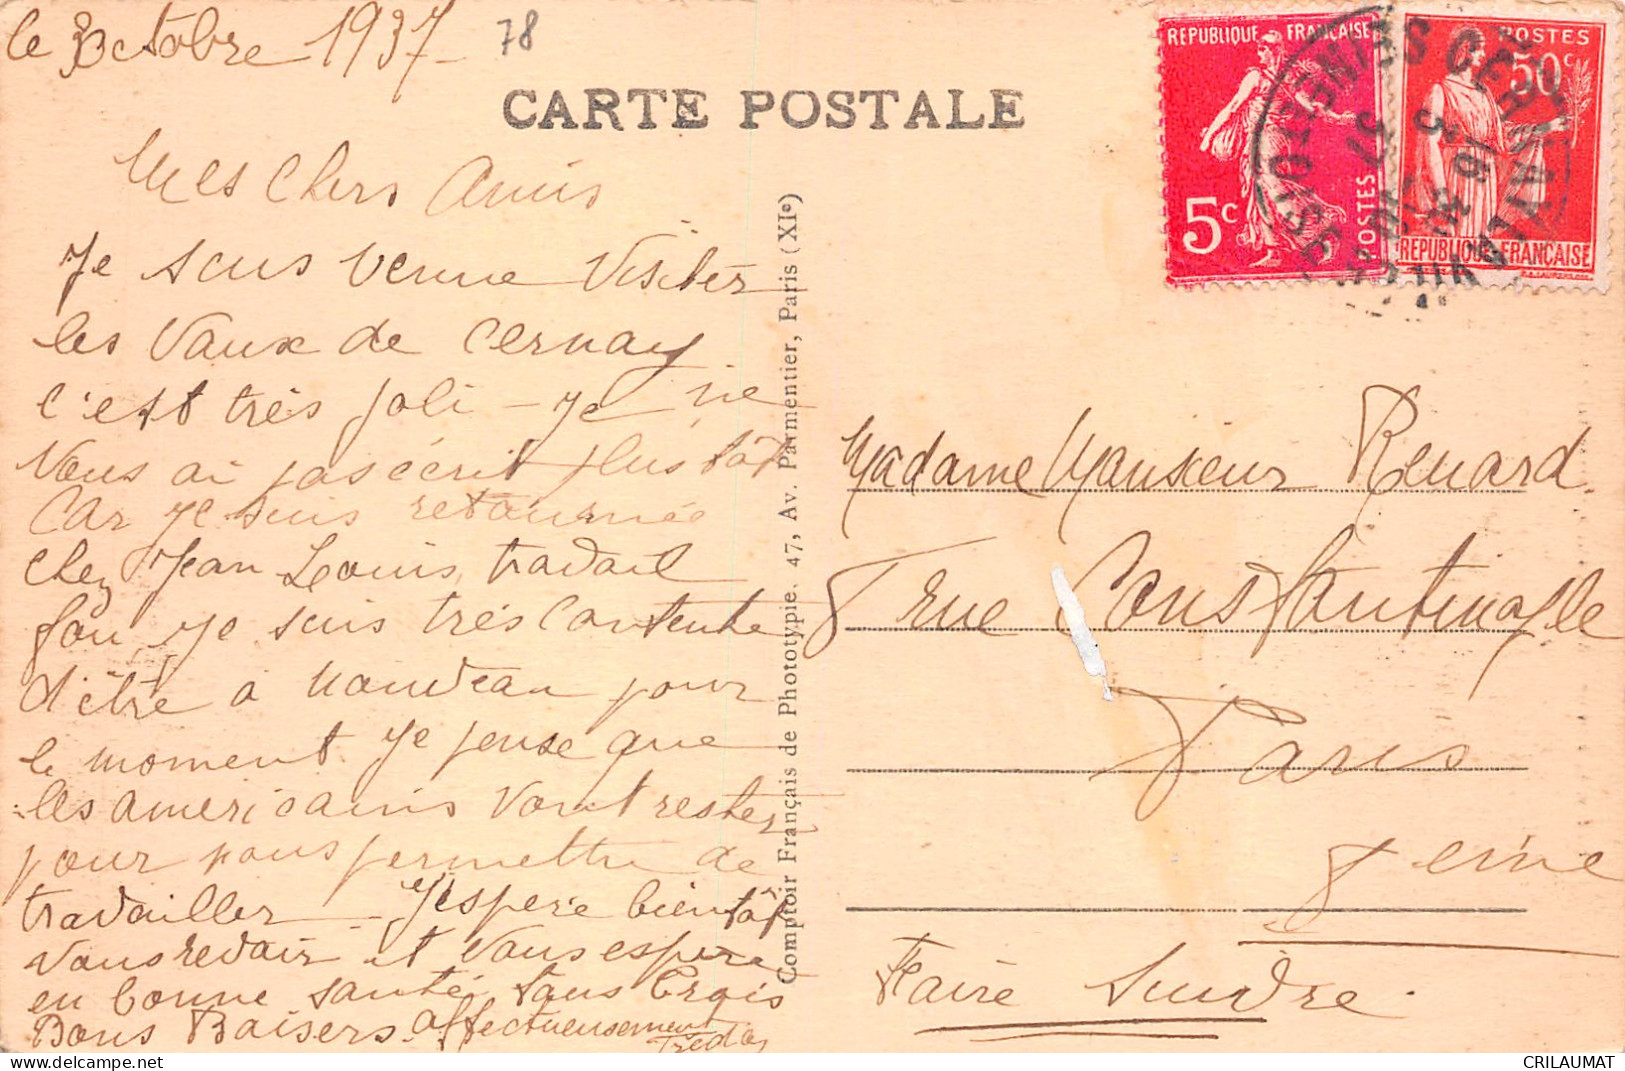 le 3 Octobre 1937-
78
CARTE POSTALE
REPUBLIQUE FRANÇAISE
5c
POSTES
POSTES
50c
REPUBLIQUE FRANÇAISE
CERNAY LA VILLE
SEINE ET OISE
Mes Chers Amis
Je suis venue Visiter
les Vaux de Cernay
c'est très joli - je ne
Vous ai pas écrit plus tôt
Car je suis retournée
chez Jean Louis, travail
fou, je suis très contente
d'être à nouveau pour
le moment. Je pense que
les americains vont rester
pour nous permettre de
travailler - J'espère bientôt
vous revoir et vous espère
en bonne santé tous trois
Bons Baisers. affectueusement
Comptoir Français de Phototypie. 47, Av. Parmentier, Paris (XIe)
Madame Monsieur Renard
7 rue Constantinople
Paris
Seine
Faire Suivre.
CRILAUMAT